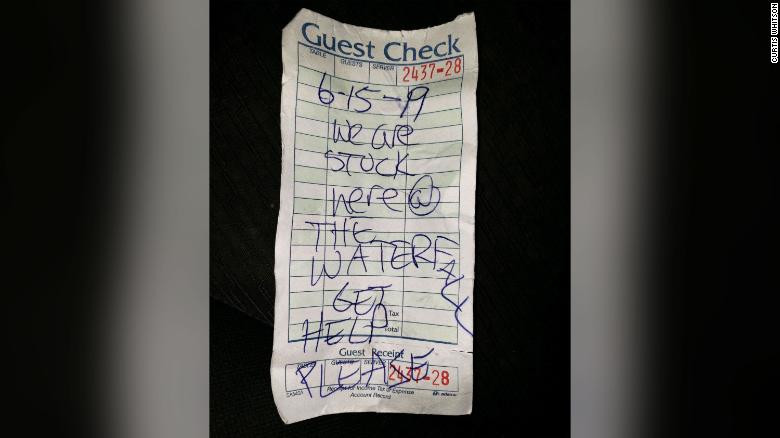 Guest Check
TABLE GUESTS SERVER 2437-28
6-15-19
We are
STUCK
here @
THE
WATERFALL
GET
Tax
HELP
Total
Guest Receipt
TABLE GUESTS SERVER 2437-28
PLEASE
Receipt for Income Tax & Expense
Account Record
CURTIS WHITSON